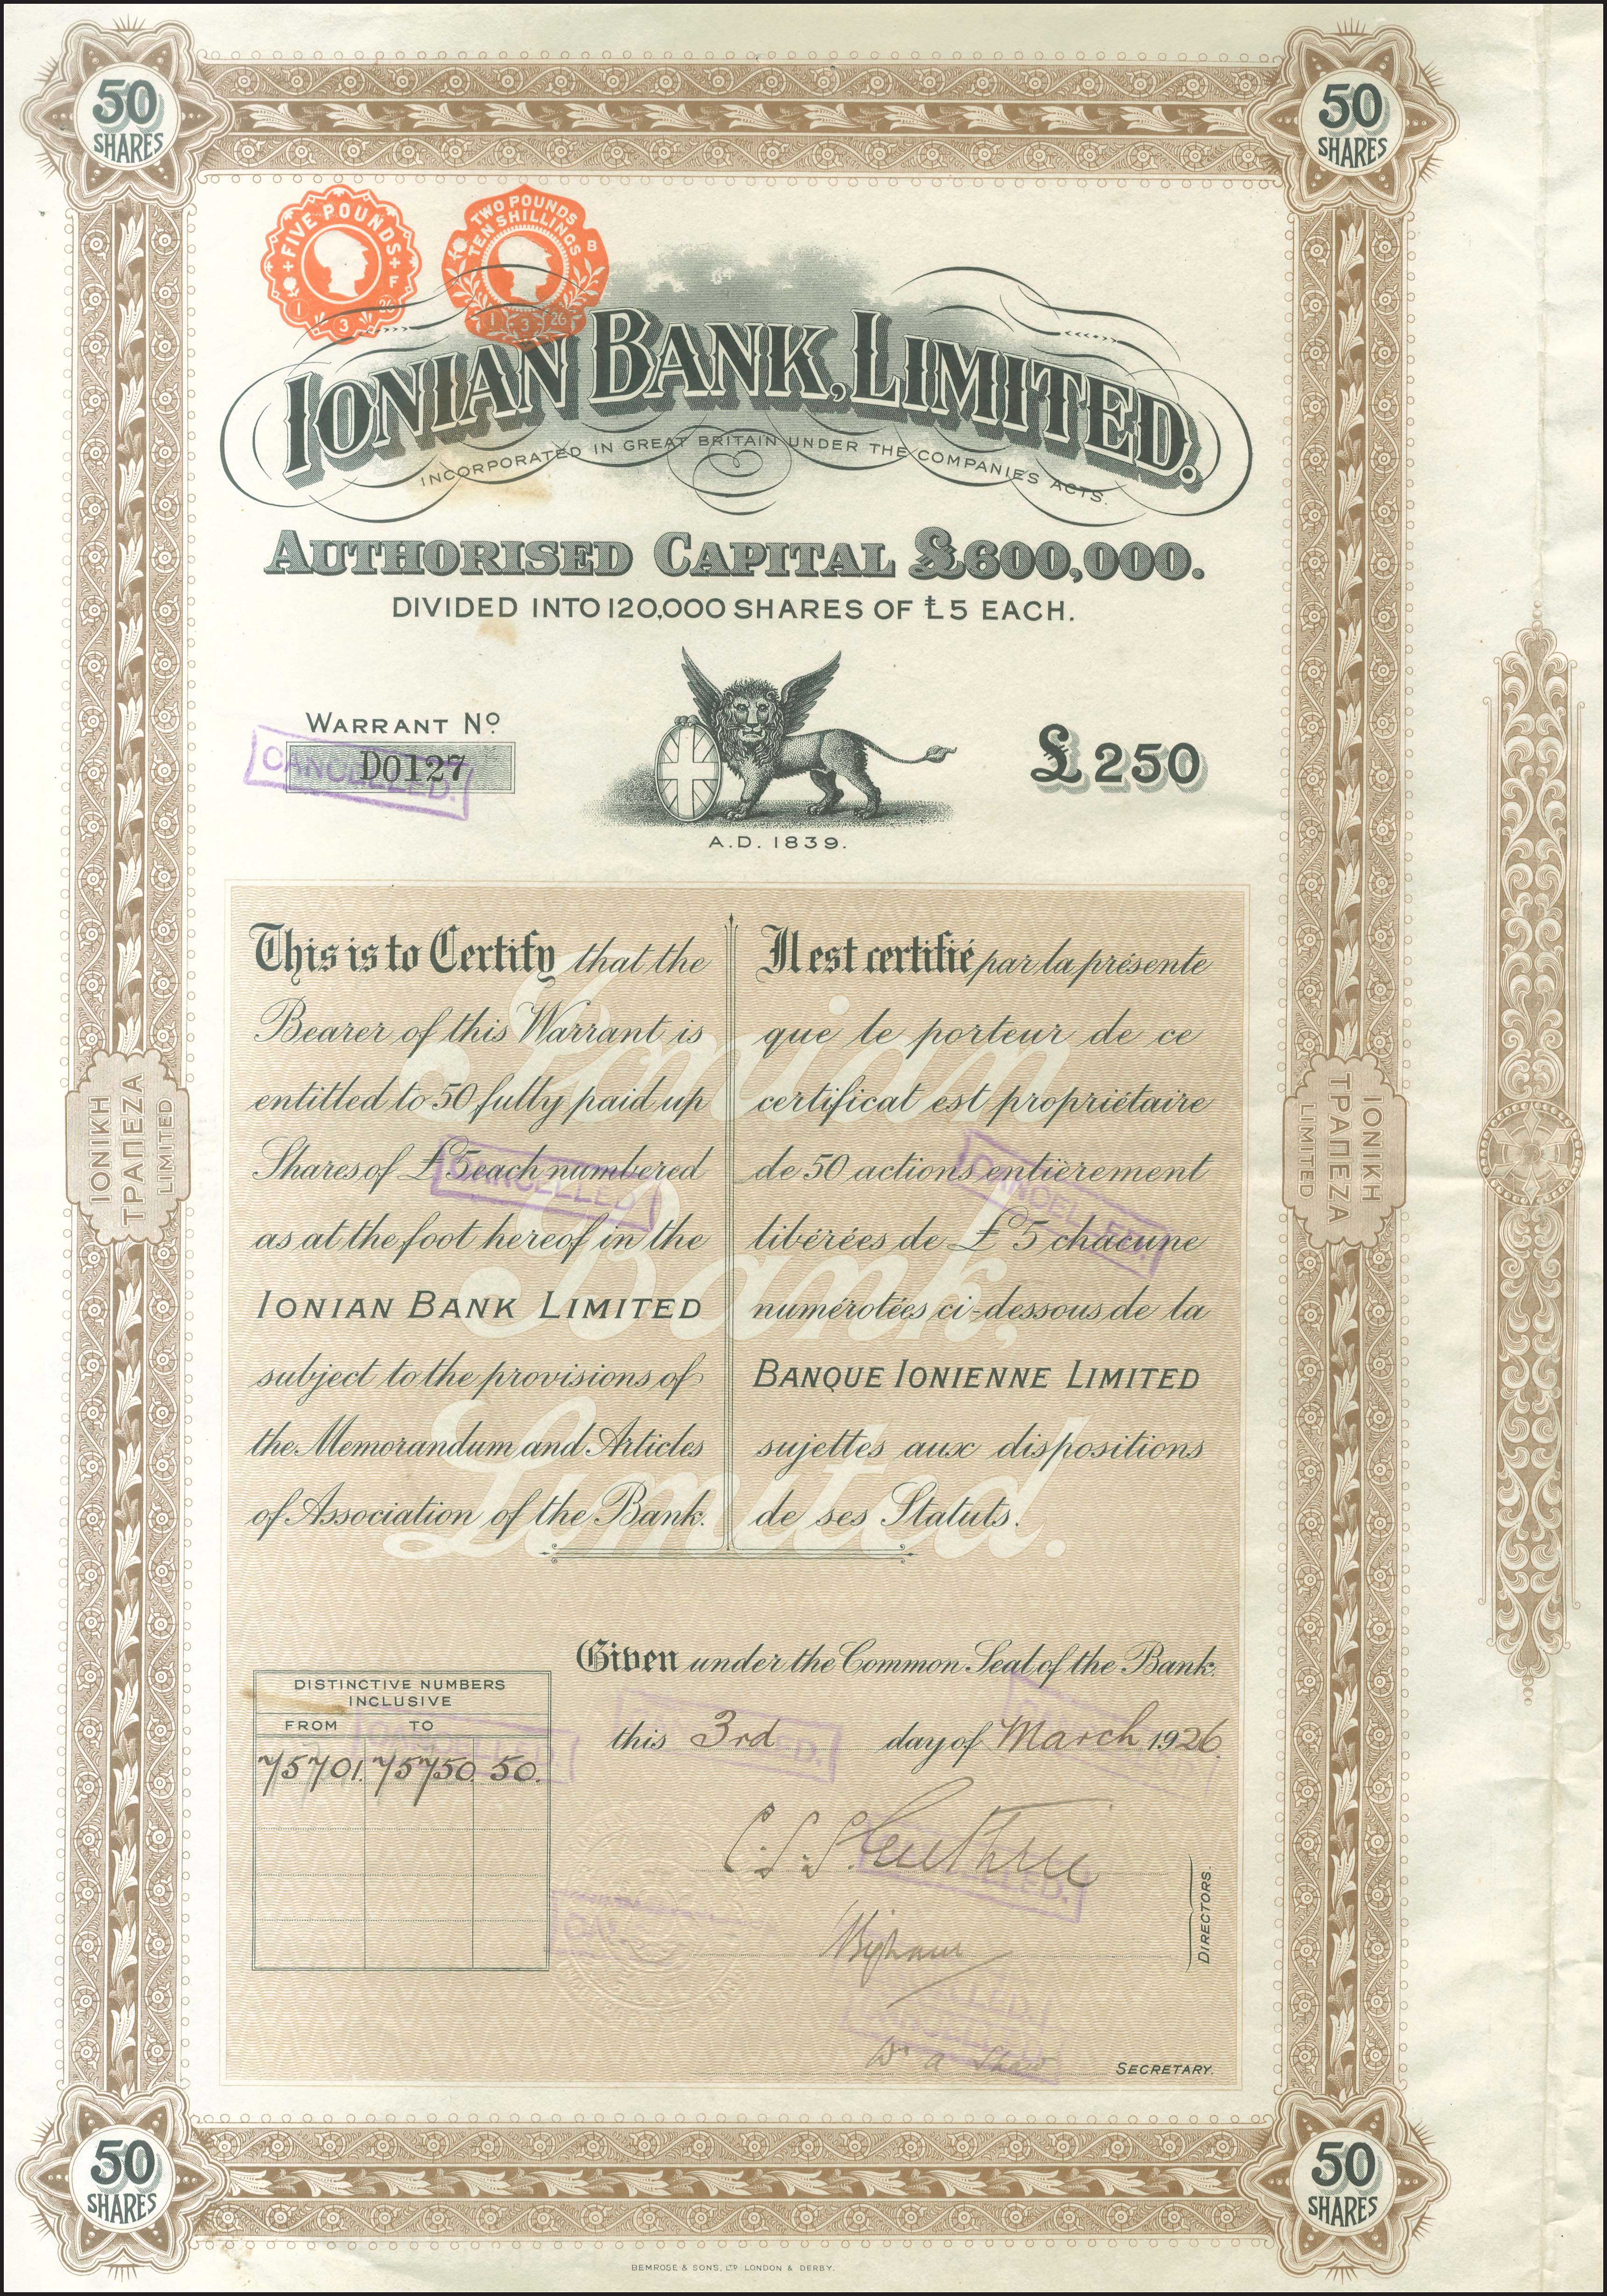 50
SHARES
50
SHARES
FIVE POUNDS
F
1 3 26
TWO POUNDS
TEN SHILLINGS
B
1 3 26
IONIAN BANK, LIMITED.
INCORPORATED IN GREAT BRITAIN UNDER THE COMPANIES ACTS.
AUTHORISED CAPITAL £600,000.
DIVIDED INTO 120,000 SHARES OF £5 EACH.
WARRANT No
D0127
CANCELLED.
£250
A.D. 1839.
This is to Certify that the
Bearer of this Warrant is
entitled to 50 fully paid up
Shares of £5 each numbered
as at the foot hereof in the
IONIAN BANK LIMITED
subject to the provisions of
the Memorandum and Articles
of Association of the Bank.
Il est certifié par la présente
que le porteur de ce
certificat est propriétaire
de 50 actions entièrement
libérées de £5 chacune
numérotées ci-dessous de la
BANQUE IONIENNE LIMITED
sujettes aux dispositions
de ses Statuts.
CANCELLED.
CANCELLED.
Ionian
Bank,
Limited.
ΙΟΝΙΚΗ
ΤΡΑΠΕΖΑ
LIMITED
ΙΟΝΙΚΗ
ΤΡΑΠΕΖΑ
LIMITED
Given under the Common Seal of the Bank.
this 3rd day of March 1926.
DISTINCTIVE NUMBERS
INCLUSIVE
FROM TO
75701. 75750 50.
CANCELLED.
CANCELLED.
CANCELLED.
DIRECTORS.
Wm A Shaw
SECRETARY.
50
SHARES
50
SHARES
BEMROSE & SONS, LTD LONDON & DERBY.